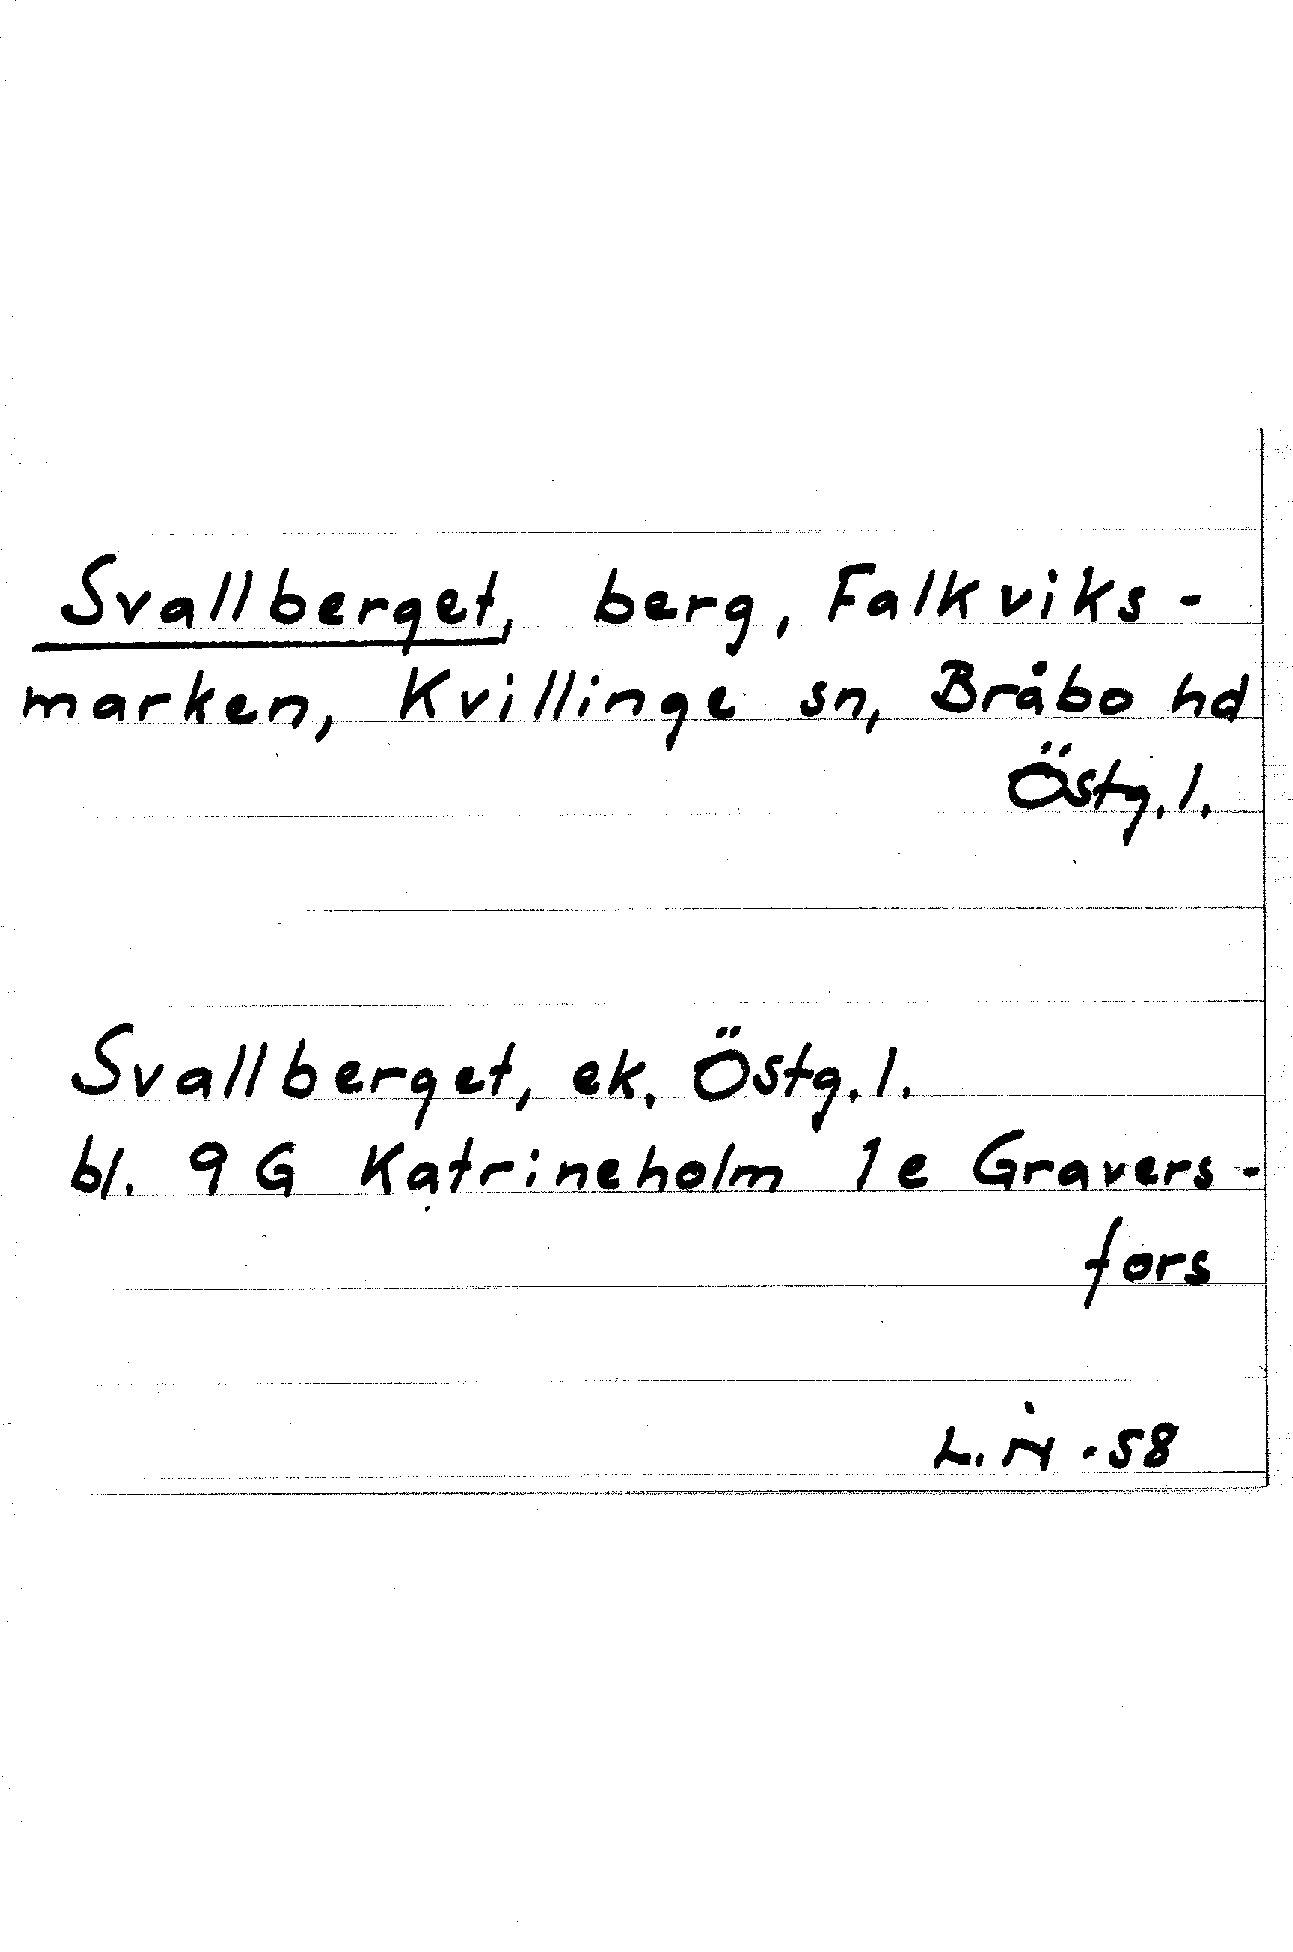 Svallberget, berg, Falkviks-
marken, Kvillinge sn, Bråbo hd
Östg. l.
Svallberget, ek. Östg. l.
bl. 9 G Katrineholm 1e Gravers-
fors
L. N -58